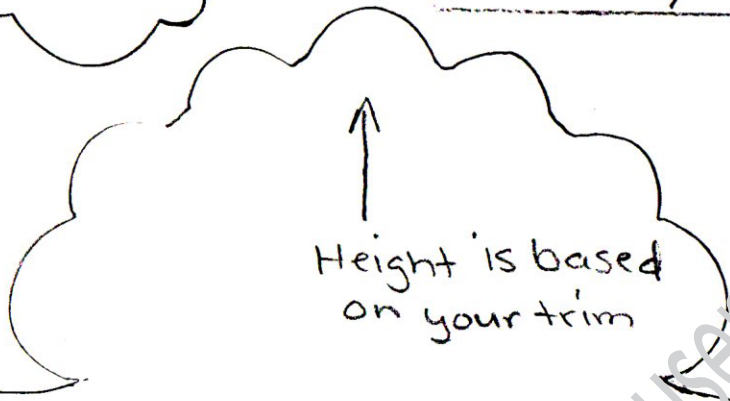 Height is based
on your trim